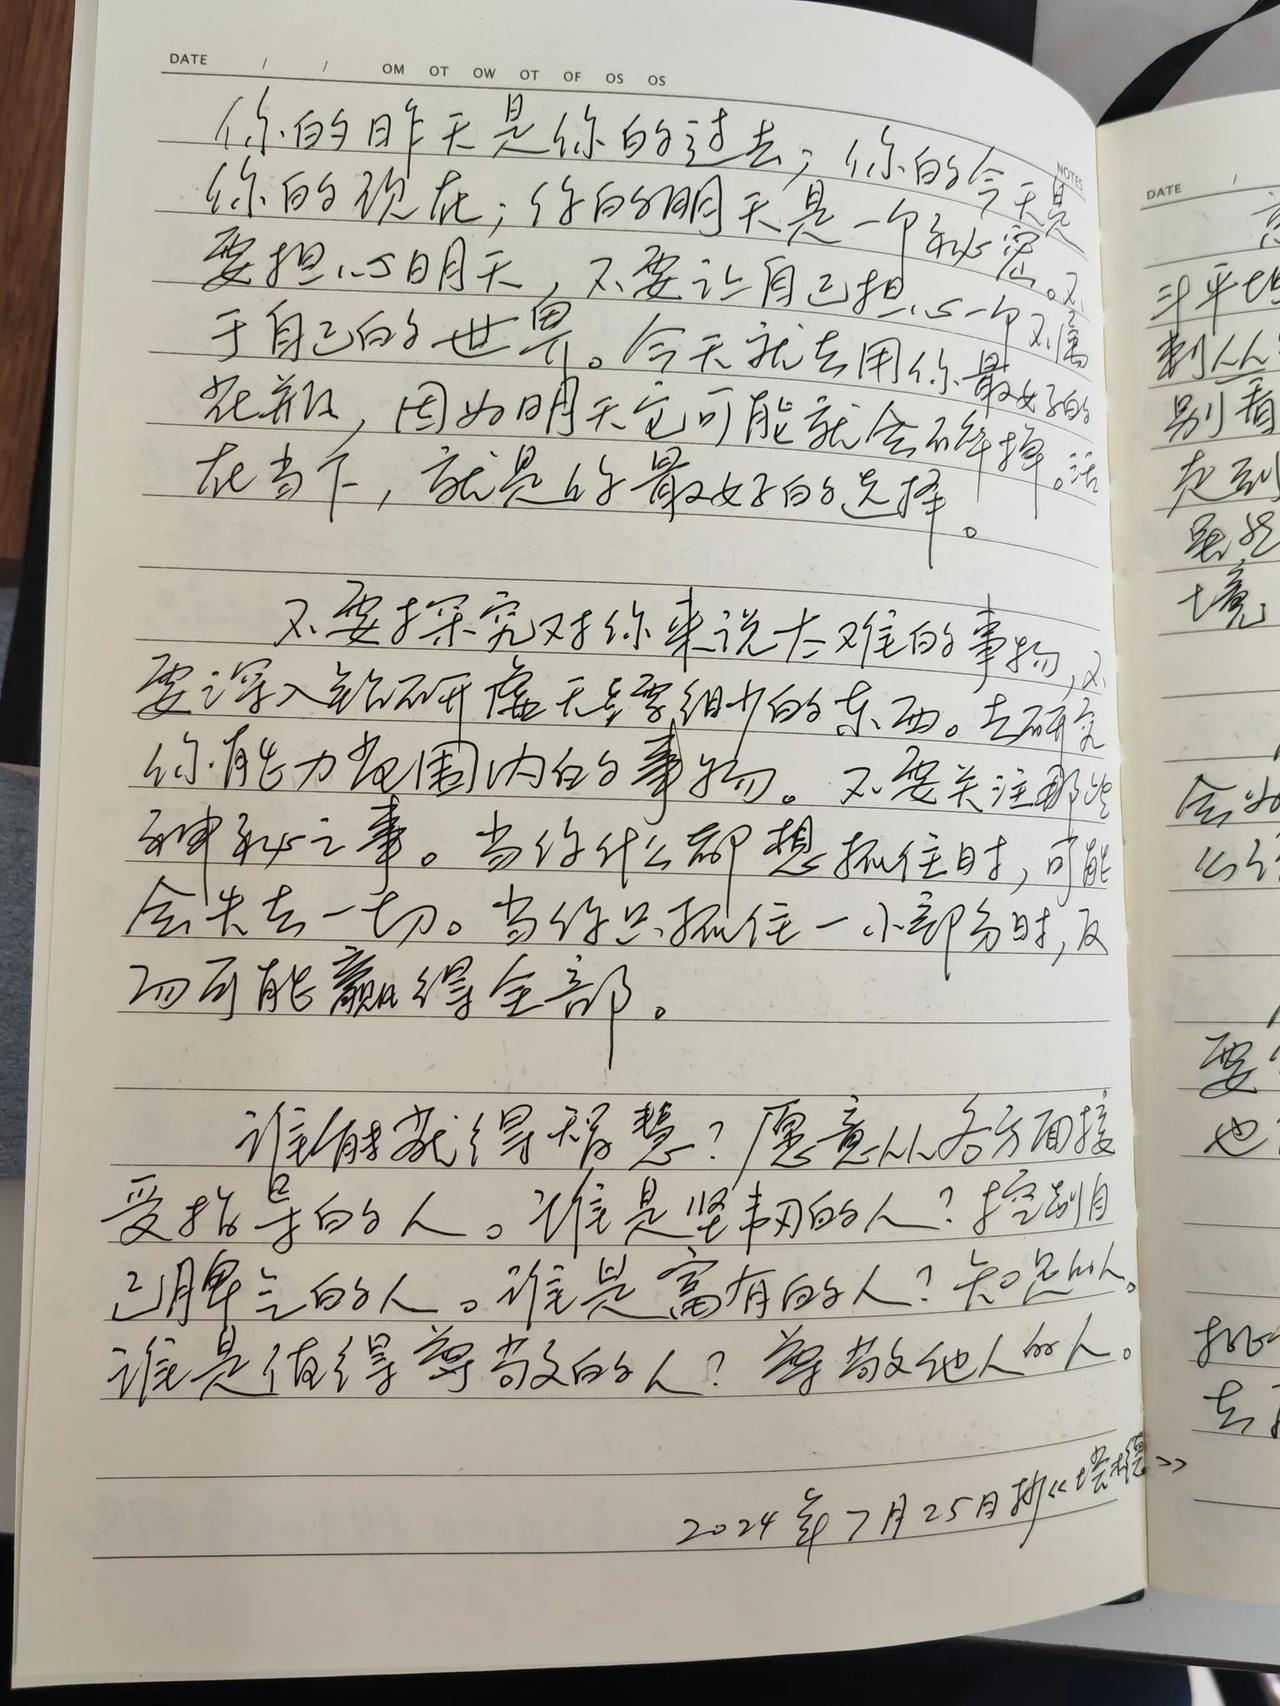 DATE / / OM OT OW OT OF OS OS
NOTES
你的昨天是你的过去；你的今天是
你的现在；你的明天是一个秘密。不
要担心明天，不要让自己担心一个不属
于自己的世界。今天就去用你最好的
花瓶，因为明天它可能就会碎掉。活
在当下，就是你最好的选择。
不要探究对你来说太难的事物，不
要深入钻研虚无缥缈的东西。去研究
你能力范围内的事物。不要关注那些
神秘之事。当你什么都想抓住时，可能
会失去一切。当你只抓住一小部分时，反
而可能赢得全部。
谁能获得智慧？愿意从各方面接
受指导的人。谁是坚韧的人？控制自
己脾气的人。谁是富有的人？知足的人。
谁是值得尊敬的人？尊敬他人的人。
2024年7月25日抄《塔木德》
DATE /
斗平坦
刺人
别看
走到
虽是
境
会
么
要
也
去